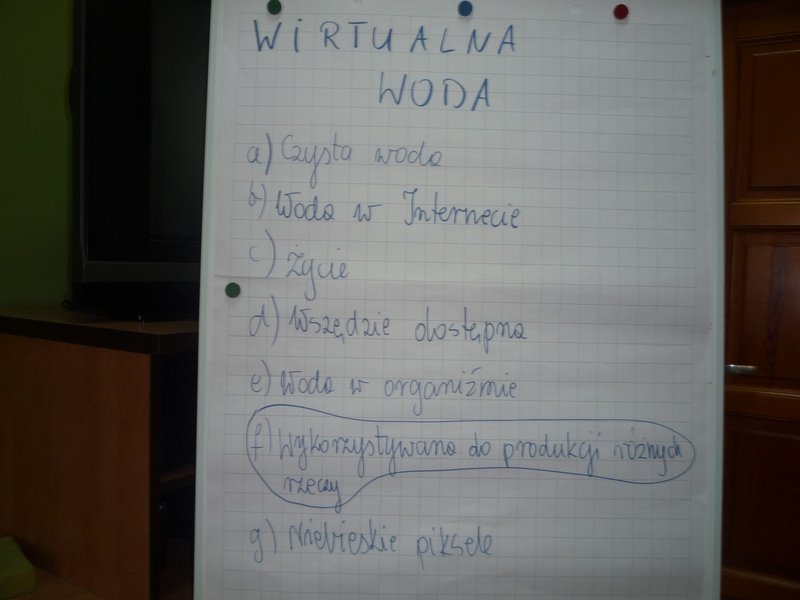 WiRTUALNA
WODA
a) Czysta woda
b) Woda w Internecie
c) życie
d) Wszędzie dostępna
e) Woda w organiźmie
f) Wykorzystywana do produkcji różnych
rzeczy
g) Niebieskie piksele